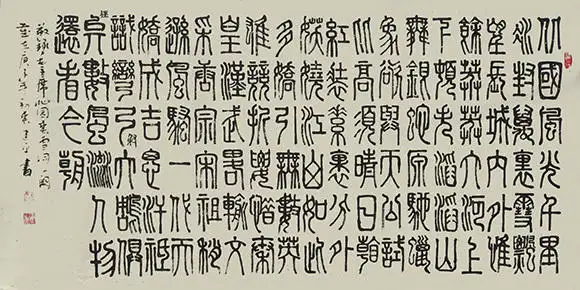 北國風光千里
冰封萬里雪飄
望長城內外惟
餘莽莽大河上
下頓失滔滔山
舞銀蛇原馳蠟
象欲與天公試
比高須晴日看
紅裝素裹分外
妖嬈江山如此
多嬌引無數英
雄競折腰惜秦
皇漢武略輸文
采唐宗宋祖稍
遜風騷一代天
驕成吉思汗祇
識彎弓射大鵰俱
往矣數風流人物
還看今朝
敬錄毛主席沁園春雪詞一闋
庚子年初春書